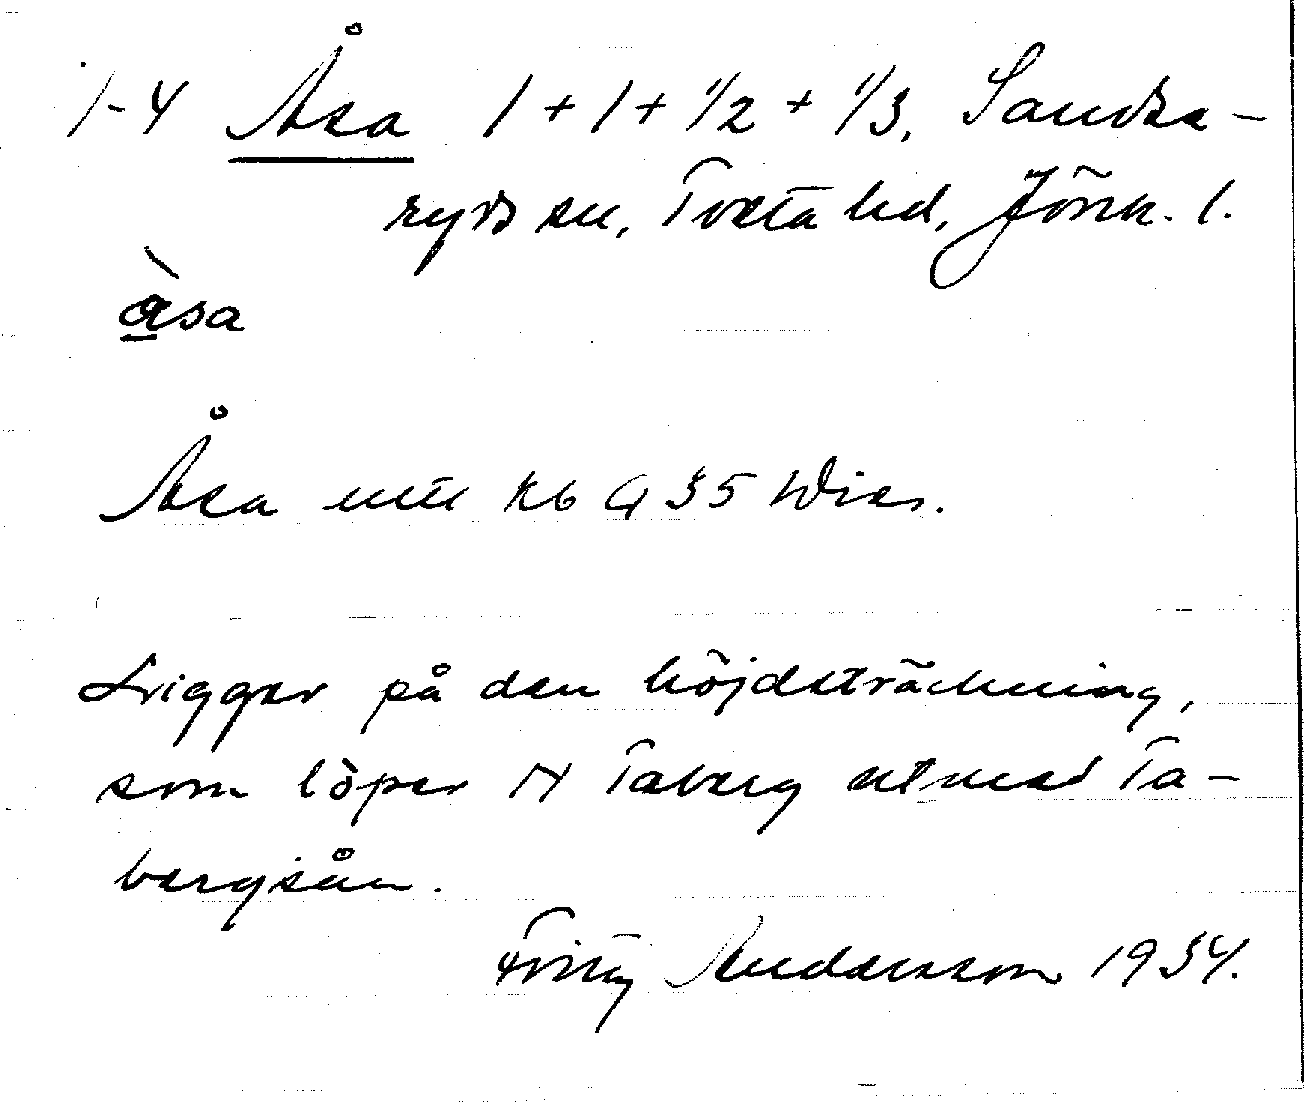 1-4 Åsa 1+1+1/2+1/3, Sandse-
ryds sn, Tveta hd, Jönk. l.
åsa
Åsa utu kb G 35 Wisn.
Ligger på den höjdsträckning,
som löper N Taberg utmed Ta-
bergsån.
Fritz Andersson 1934.